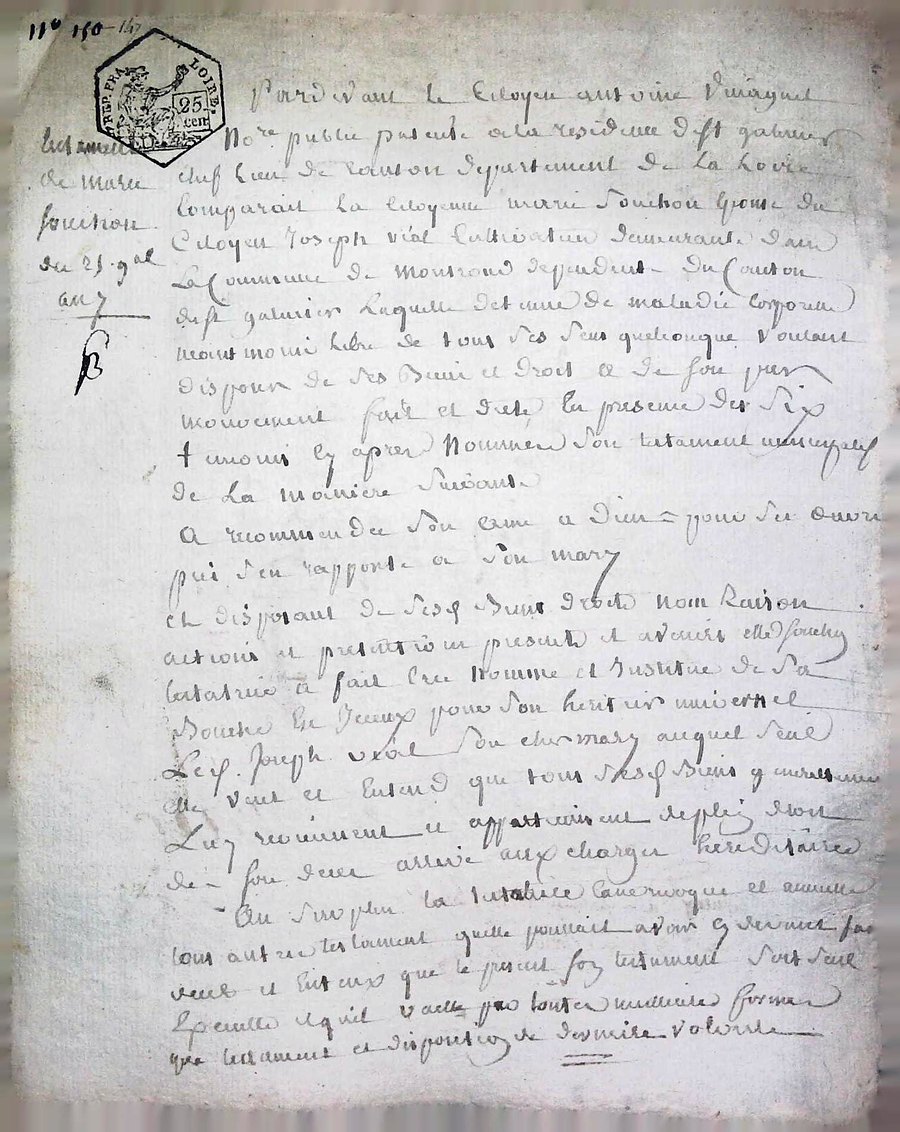 n° 150
REP. FRA.
LOIRE.
25
cen
testament
de marie
souchon
du 25 g.al
an 7
Pardevant le Citoyen antoine
No.re public patenté a la residence de st galmier
chef lieu de canton departement de La Loire
Comparait La Citoyenne marie Souchon Epouse du
Citoyen Joseph vial Cultivateur demeurante dans
La Commune de Montrond dependente du Canton
de st galmier Laquelle detenue de maladie Corporelle
neantmoins libre de tous ses sens quelconque voulant
disposer de ses Biens et droit et de son pure
mouvement fait et dicté En presence des six
temoins Cy apres Nommés son testament nuncupatif
de La maniere suivante
A recommendée son ame a Dieu pour ses
s'en rapporte a son mary
et disposant de ses Biens droits nom Raison
actions et pretentions presents et avenirs elle souchon
testatrice a fait Cree Nomme et Institue de sa
Bouche pour son heritier universel
Le C. Joseph vial son cher mary auquel seul
elle veut et Entend que tous ses Biens generalement
Luy reviennent et appartiennent de plein droit
de son deces arrivé aux charges hereditaires
Au surplus la testatrice et annulle
tous autres testament quelle pourrait avoir cy devant fai
veut et Entend que le present son testament sort seul
et qu'il vaille par toutes meilleures formes
que testament et disposition de derniere volonté